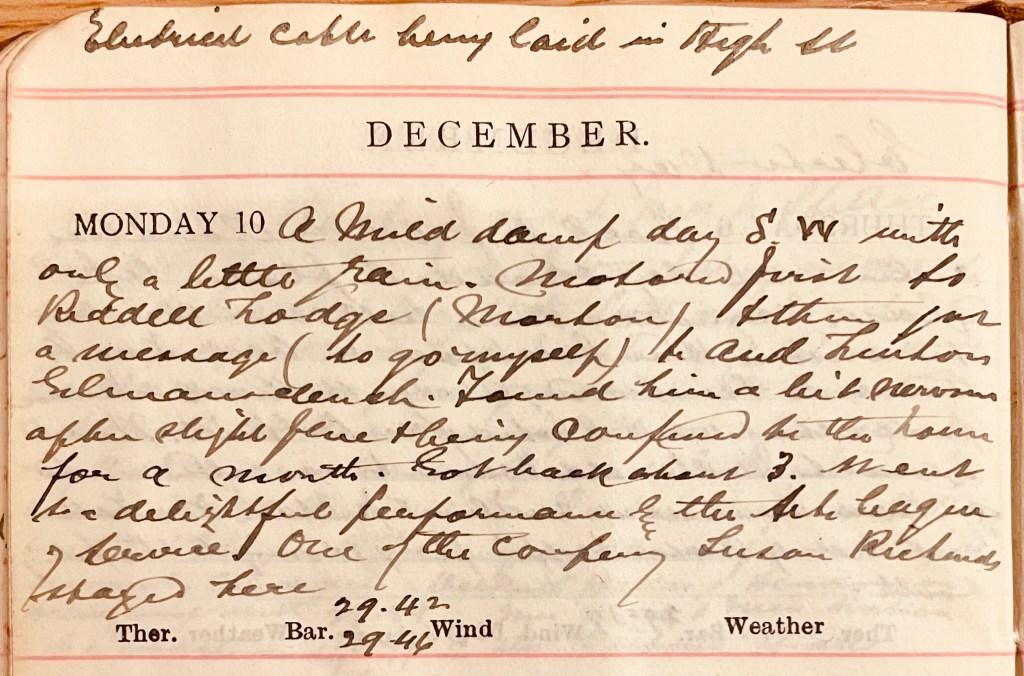 Electrical Cable being laid in High St
DECEMBER.
MONDAY 10 A Mild damp day S. W with
only a little rain. Motored first to
Riddell Lodge (Morton) & then got
a message (to go myself) to Auld Linton
Edmansdean. Found him a bit nervous
after slight flue & being Confined to the house
for a month. Got back about 3. Went
to a delightful performance by the Arts League
of Service. One of the Company Susan Richards
stayed here
29.42
Ther. Bar. 29.46 Wind Weather